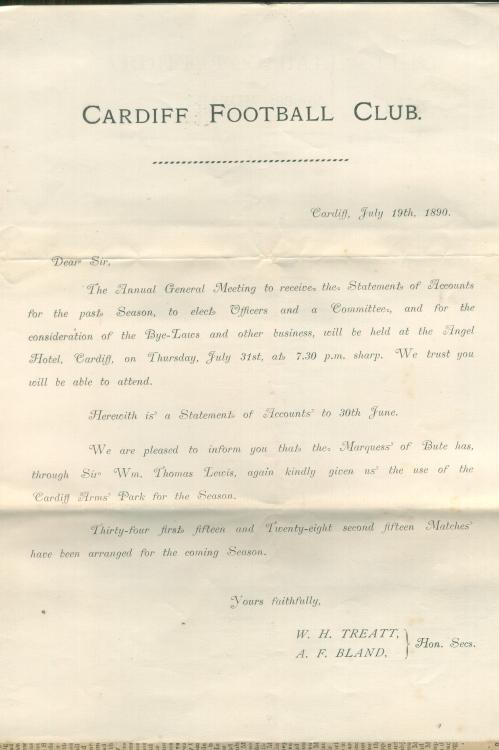 CARDIFF FOOTBALL CLUB.
Cardiff, July 19th, 1890.
Dear Sir,
The Annual General Meeting to receive the Statement of Accounts
for the past Season, to elect Officers and a Committee, and for the
consideration of the Bye-Laws and other business, will be held at the Angel
Hotel, Cardiff, on Thursday, July 31st, at 7.30 p.m. sharp. We trust you
will be able to attend.
Herewith is a Statement of Accounts to 30th June.
We are pleased to inform you that the Marquess of Bute has,
through Sir Wm. Thomas Lewis, again kindly given us the use of the
Cardiff Arms Park for the Season.
Thirty-four first fifteen and Twenty-eight second fifteen Matches
have been arranged for the coming Season.
Yours faithfully,
W. H. TREATT,
A. F. BLAND,
Hon. Secs.